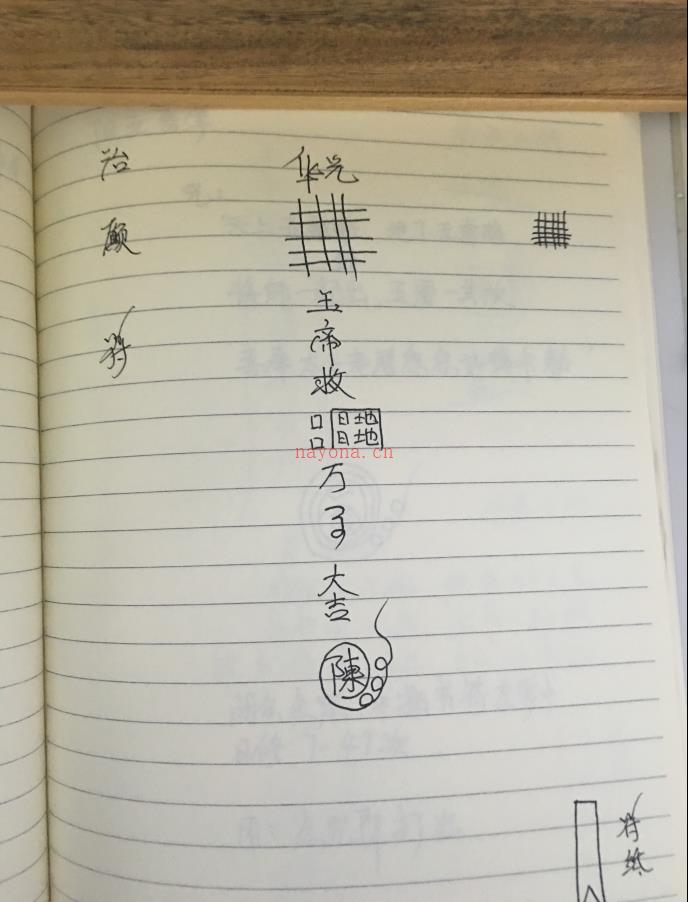 治符
华光玉帝敕口口日日地地万事大吉陳
符纸
nayona.cn